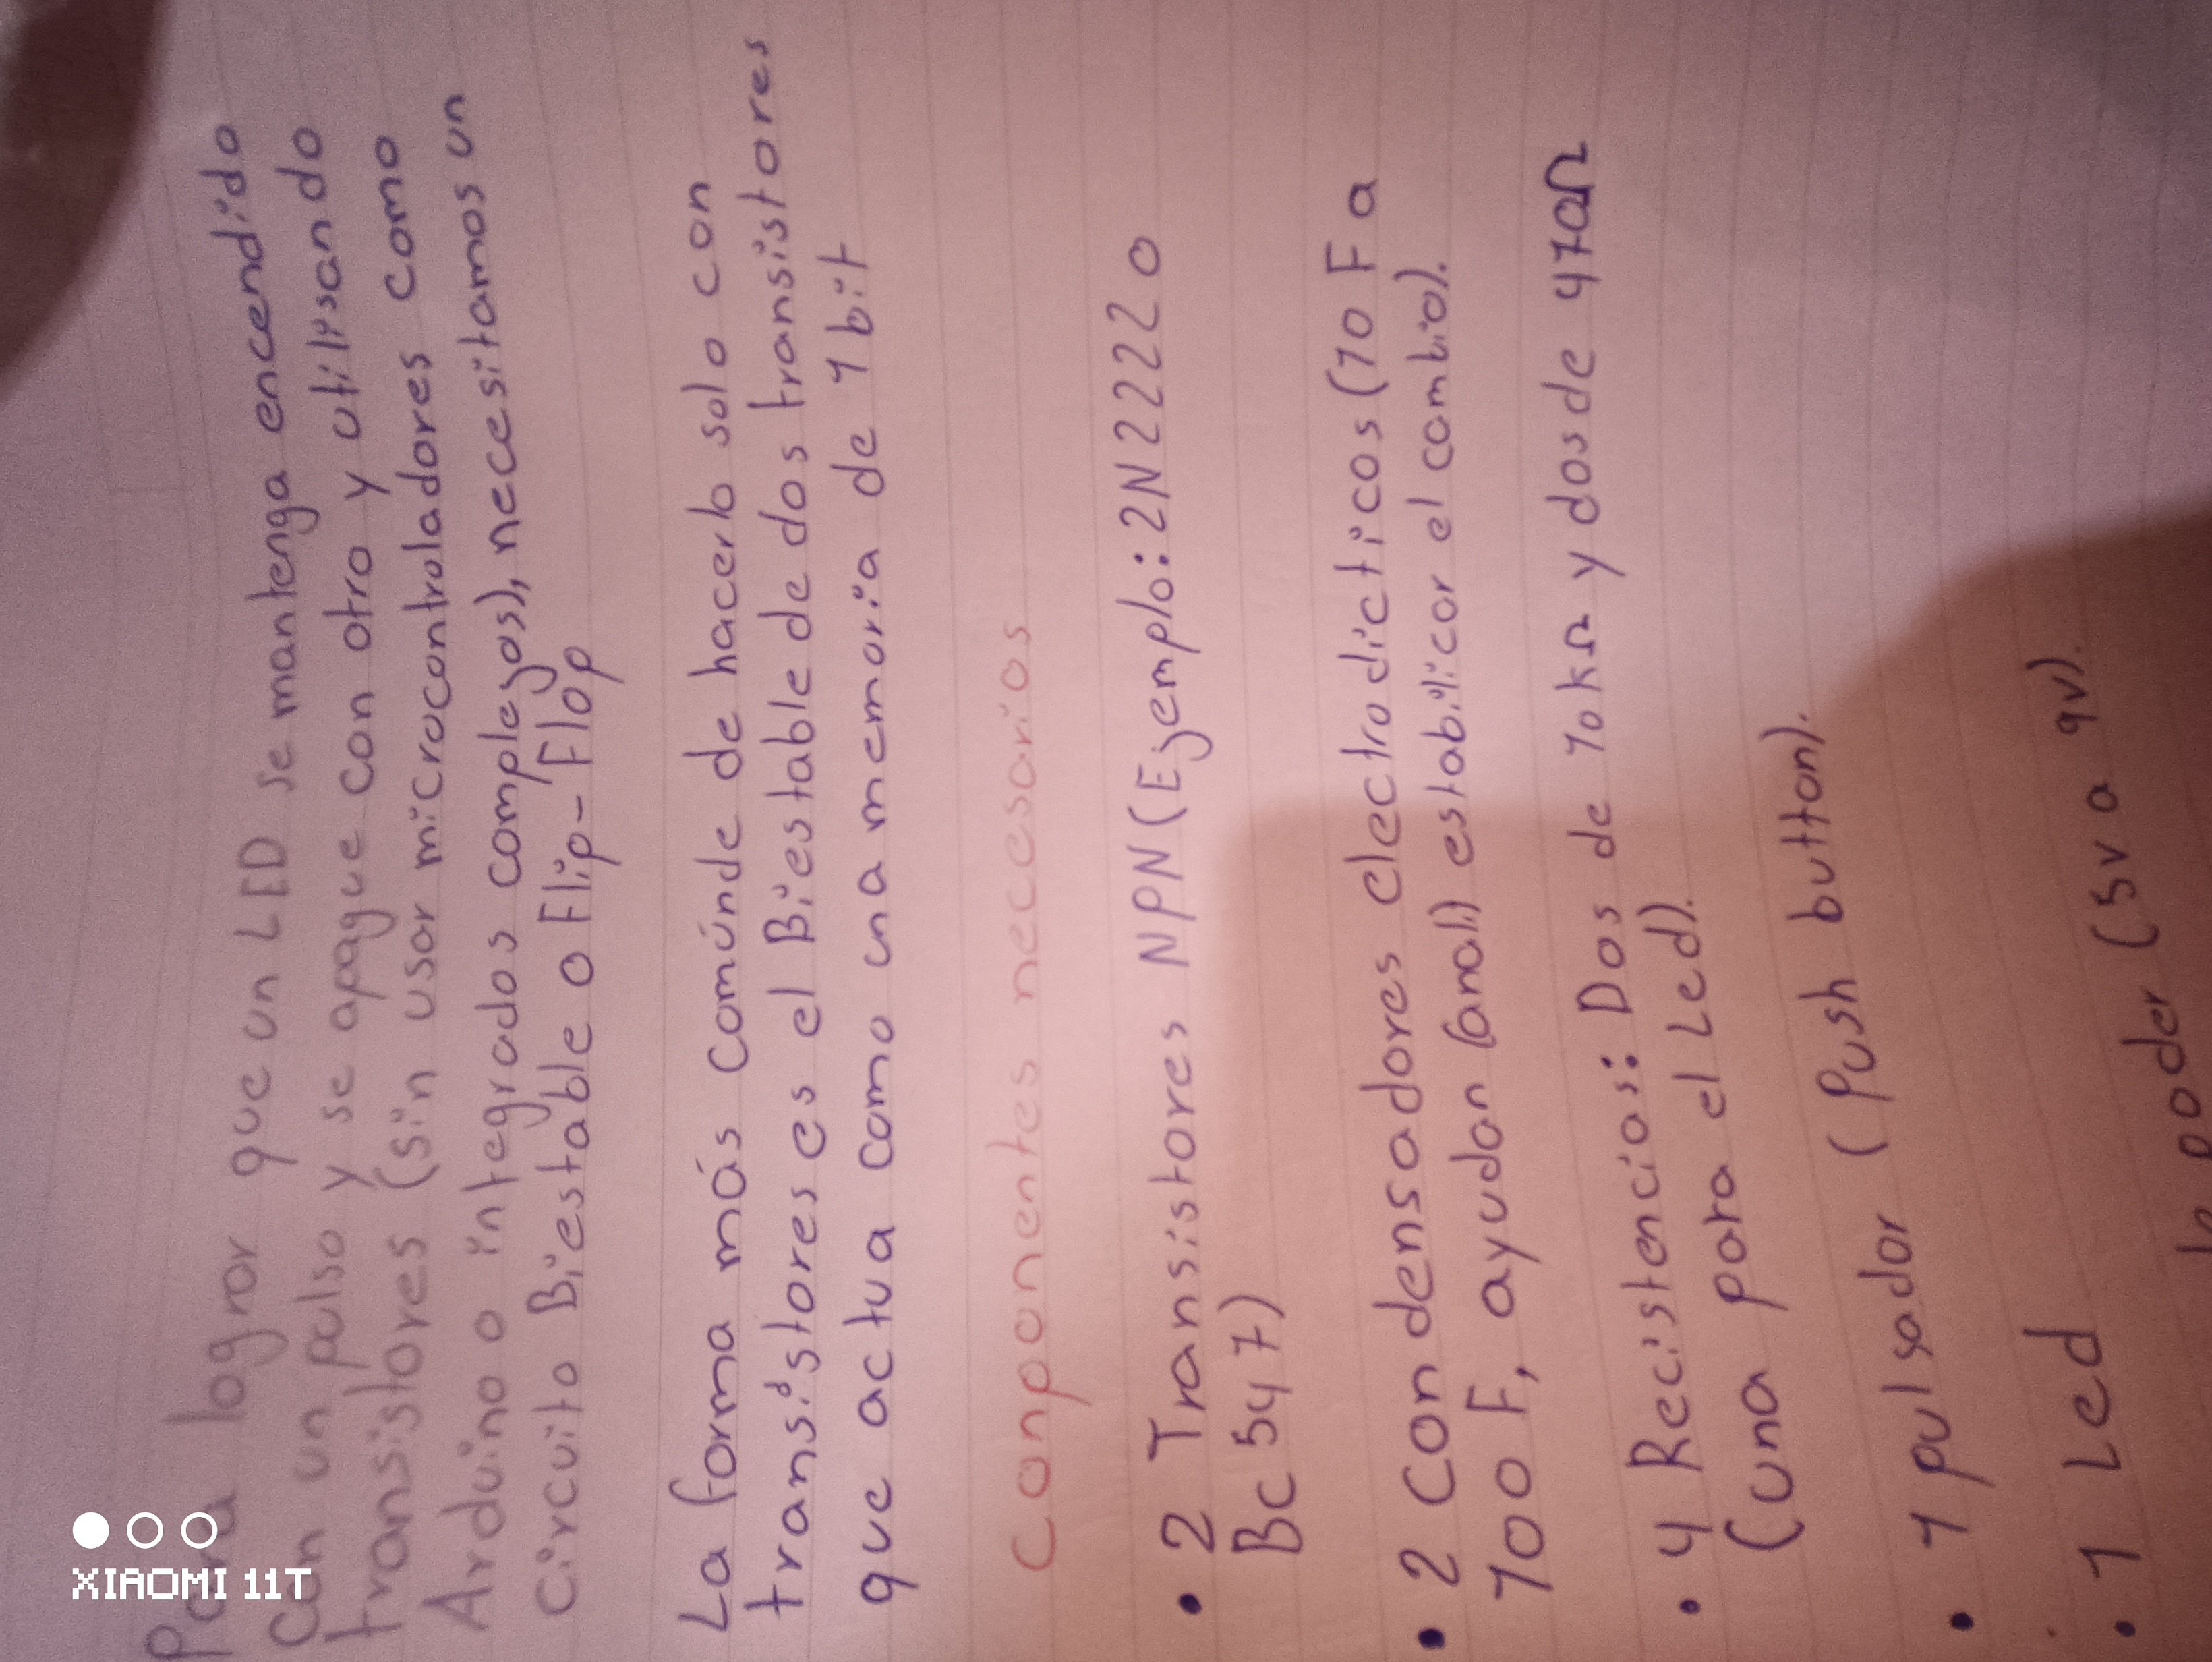 Para lograr que un LED se mantenga encendido
Con un pulso y se apague con otro y utilisando
transistores (sin usar microcontroladores como
Arduino o integrados compleyos), necesitamos un
circuito Biestable o Flip-Flop
La forma más comúnde de hacerlo solo con
transistores es el Biestable de dos transistores
que actua como una memoria de 1 bit
Conponentes necesarios
• 2 Transistores NPN (Ejemplo: 2N2222 o
Bc 547)
• 2 Condensadores electrodicticos (10 F a
100 F, ayudan (anal) estabilicar el cambio).
• 4 Recistencias: Dos de 10kΩ y dos de 470Ω
(una para el Led).
• 1 pulsador (Push button).
• 1 Led
de poder (5v a 9v).
XIAOMI 11T